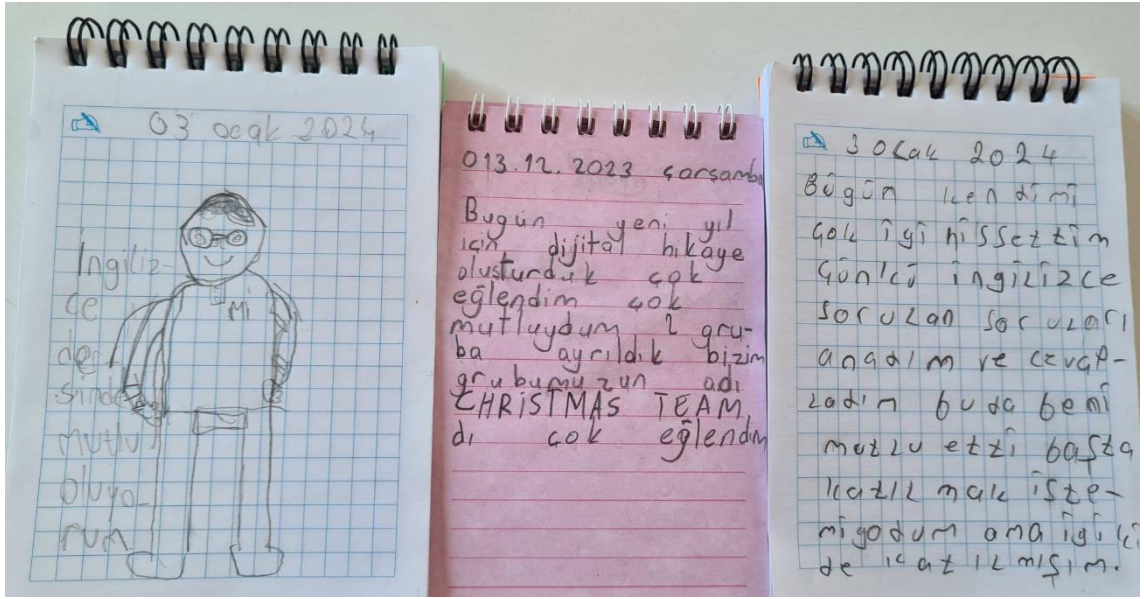 03 ocak 2024
İngiliz-
ce
der
sinde
mutlu
oluyo-
rum
Mi
013.12.2023 çarşamba
Bugün yeni yıl
için dijital hikaye
oluşturduk çok
eğlendim çok
mutluydum 2 gru-
ba ayrıldık bizim
grubumuzun adı
CHRİSTMAS TEAM
dı çok eğlendim
3 Ocak 2024
Bügün kendimi
çok iyi hissettim
Günkü ingilizce
sorulan soruları
anadım ve cevap-
ladım buda beni
mutlu etti başta
katılmak iste-
miyodum ama iyiki
de katılmışım.